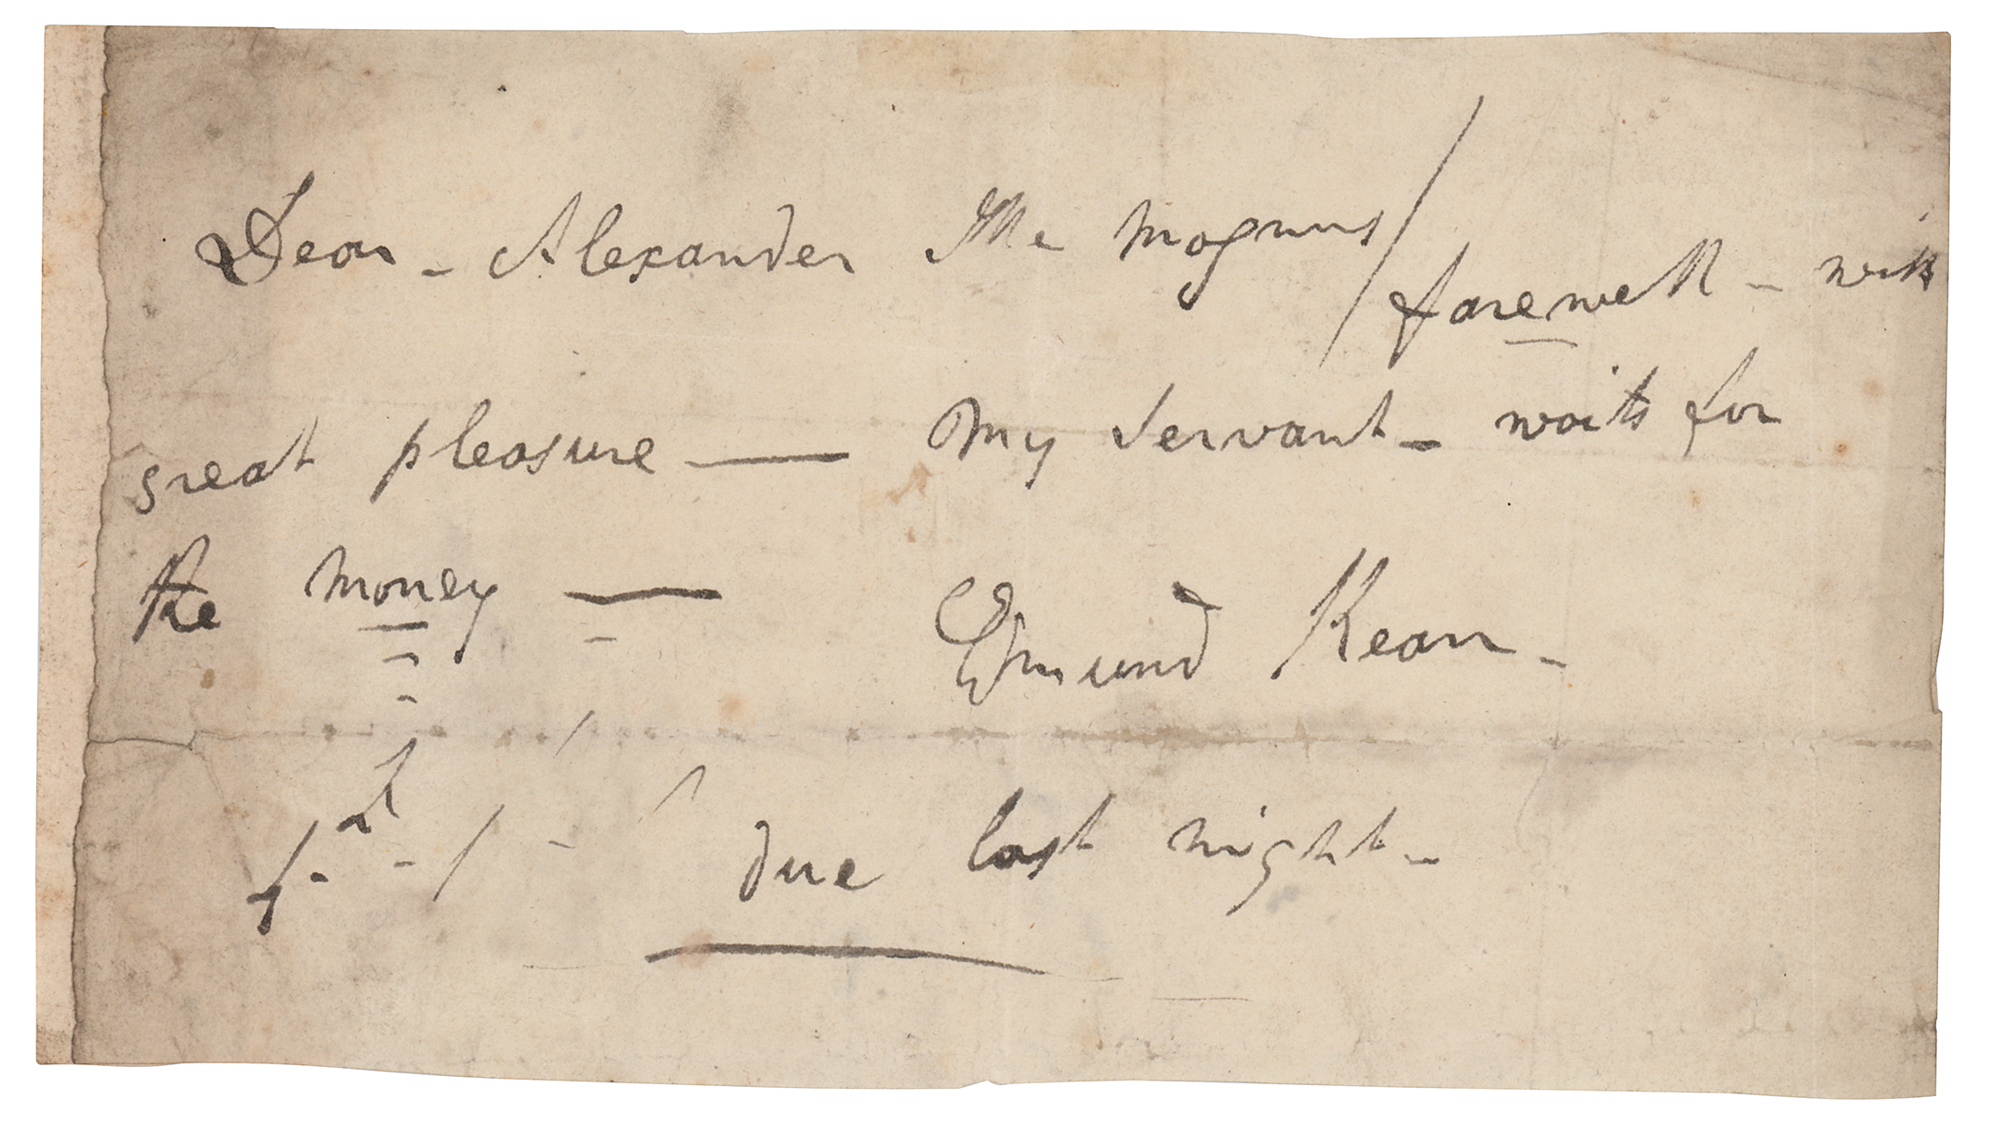 Dear - Alexander the magnus / farewell - with
great pleasure — My servant - waits for
the money —
Edmund Kean -
due last night -